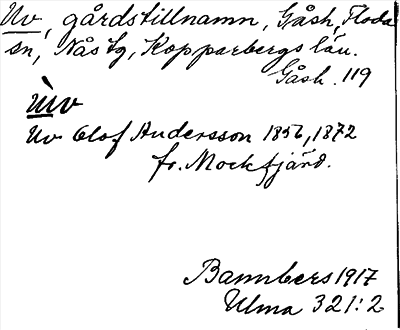 Uv, gårdstillnamn, Gåsh, Floda
sn, Nås tg, Kopparbergs län.
Gåsh. 119
ùv
Uv Olof Andersson 1856, 1872
fr. Mockfjärd.
Bannbers 1917
Ulma 321:2